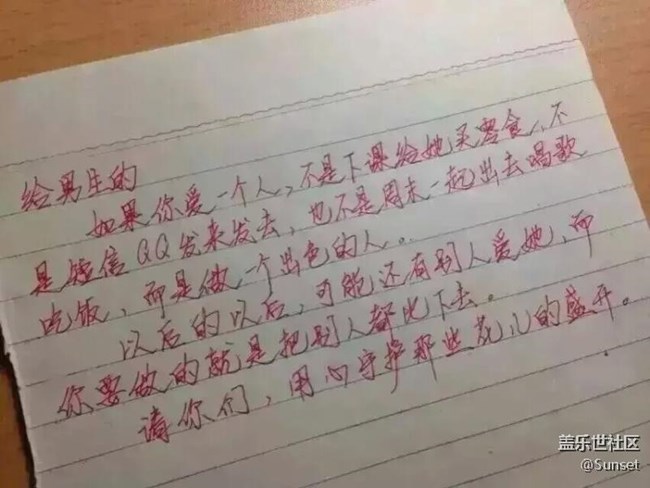 给男生的
如果你爱一个人，不是下课给她买零食，不
是短信QQ发来发去，也不是周末一起出去唱歌
吃饭，而是做一个出色的人。
以后的以后，可能还有别人爱她，而
你要做的就是把别人都比下去。
请你们，用心守护那些花儿的盛开。
盖乐世社区
@Sunset